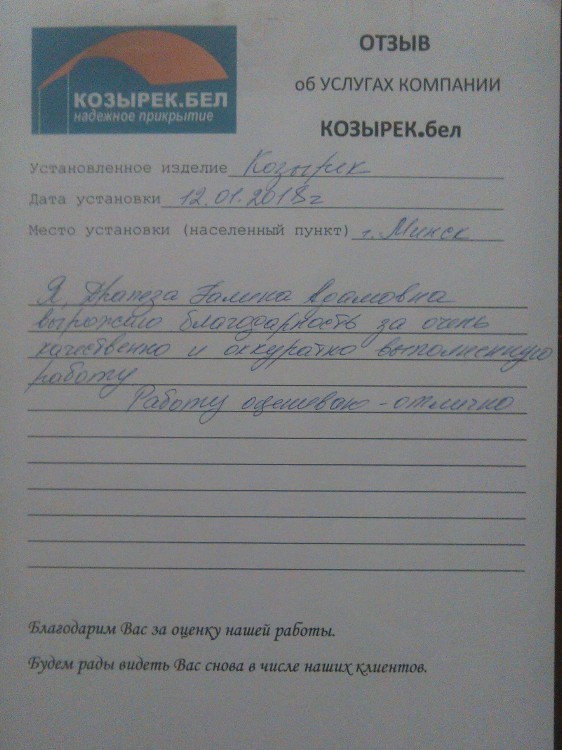 КОЗЫРЕК.БЕЛ
надежное прикрытие
ОТЗЫВ
об УСЛУГАХ КОМПАНИИ
КОЗЫРЕК.бел
Установленное изделие Козырек
Дата установки 12.01.2018г
Место установки (населенный пункт) г. Минск
Я, Драпеза Галина Адамовна
выражаю благодарность за очень
качественно и аккуратно выполненную
работу
Работу оцениваю - отлично
Благодарим Вас за оценку нашей работы.
Будем рады видеть Вас снова в числе наших клиентов.